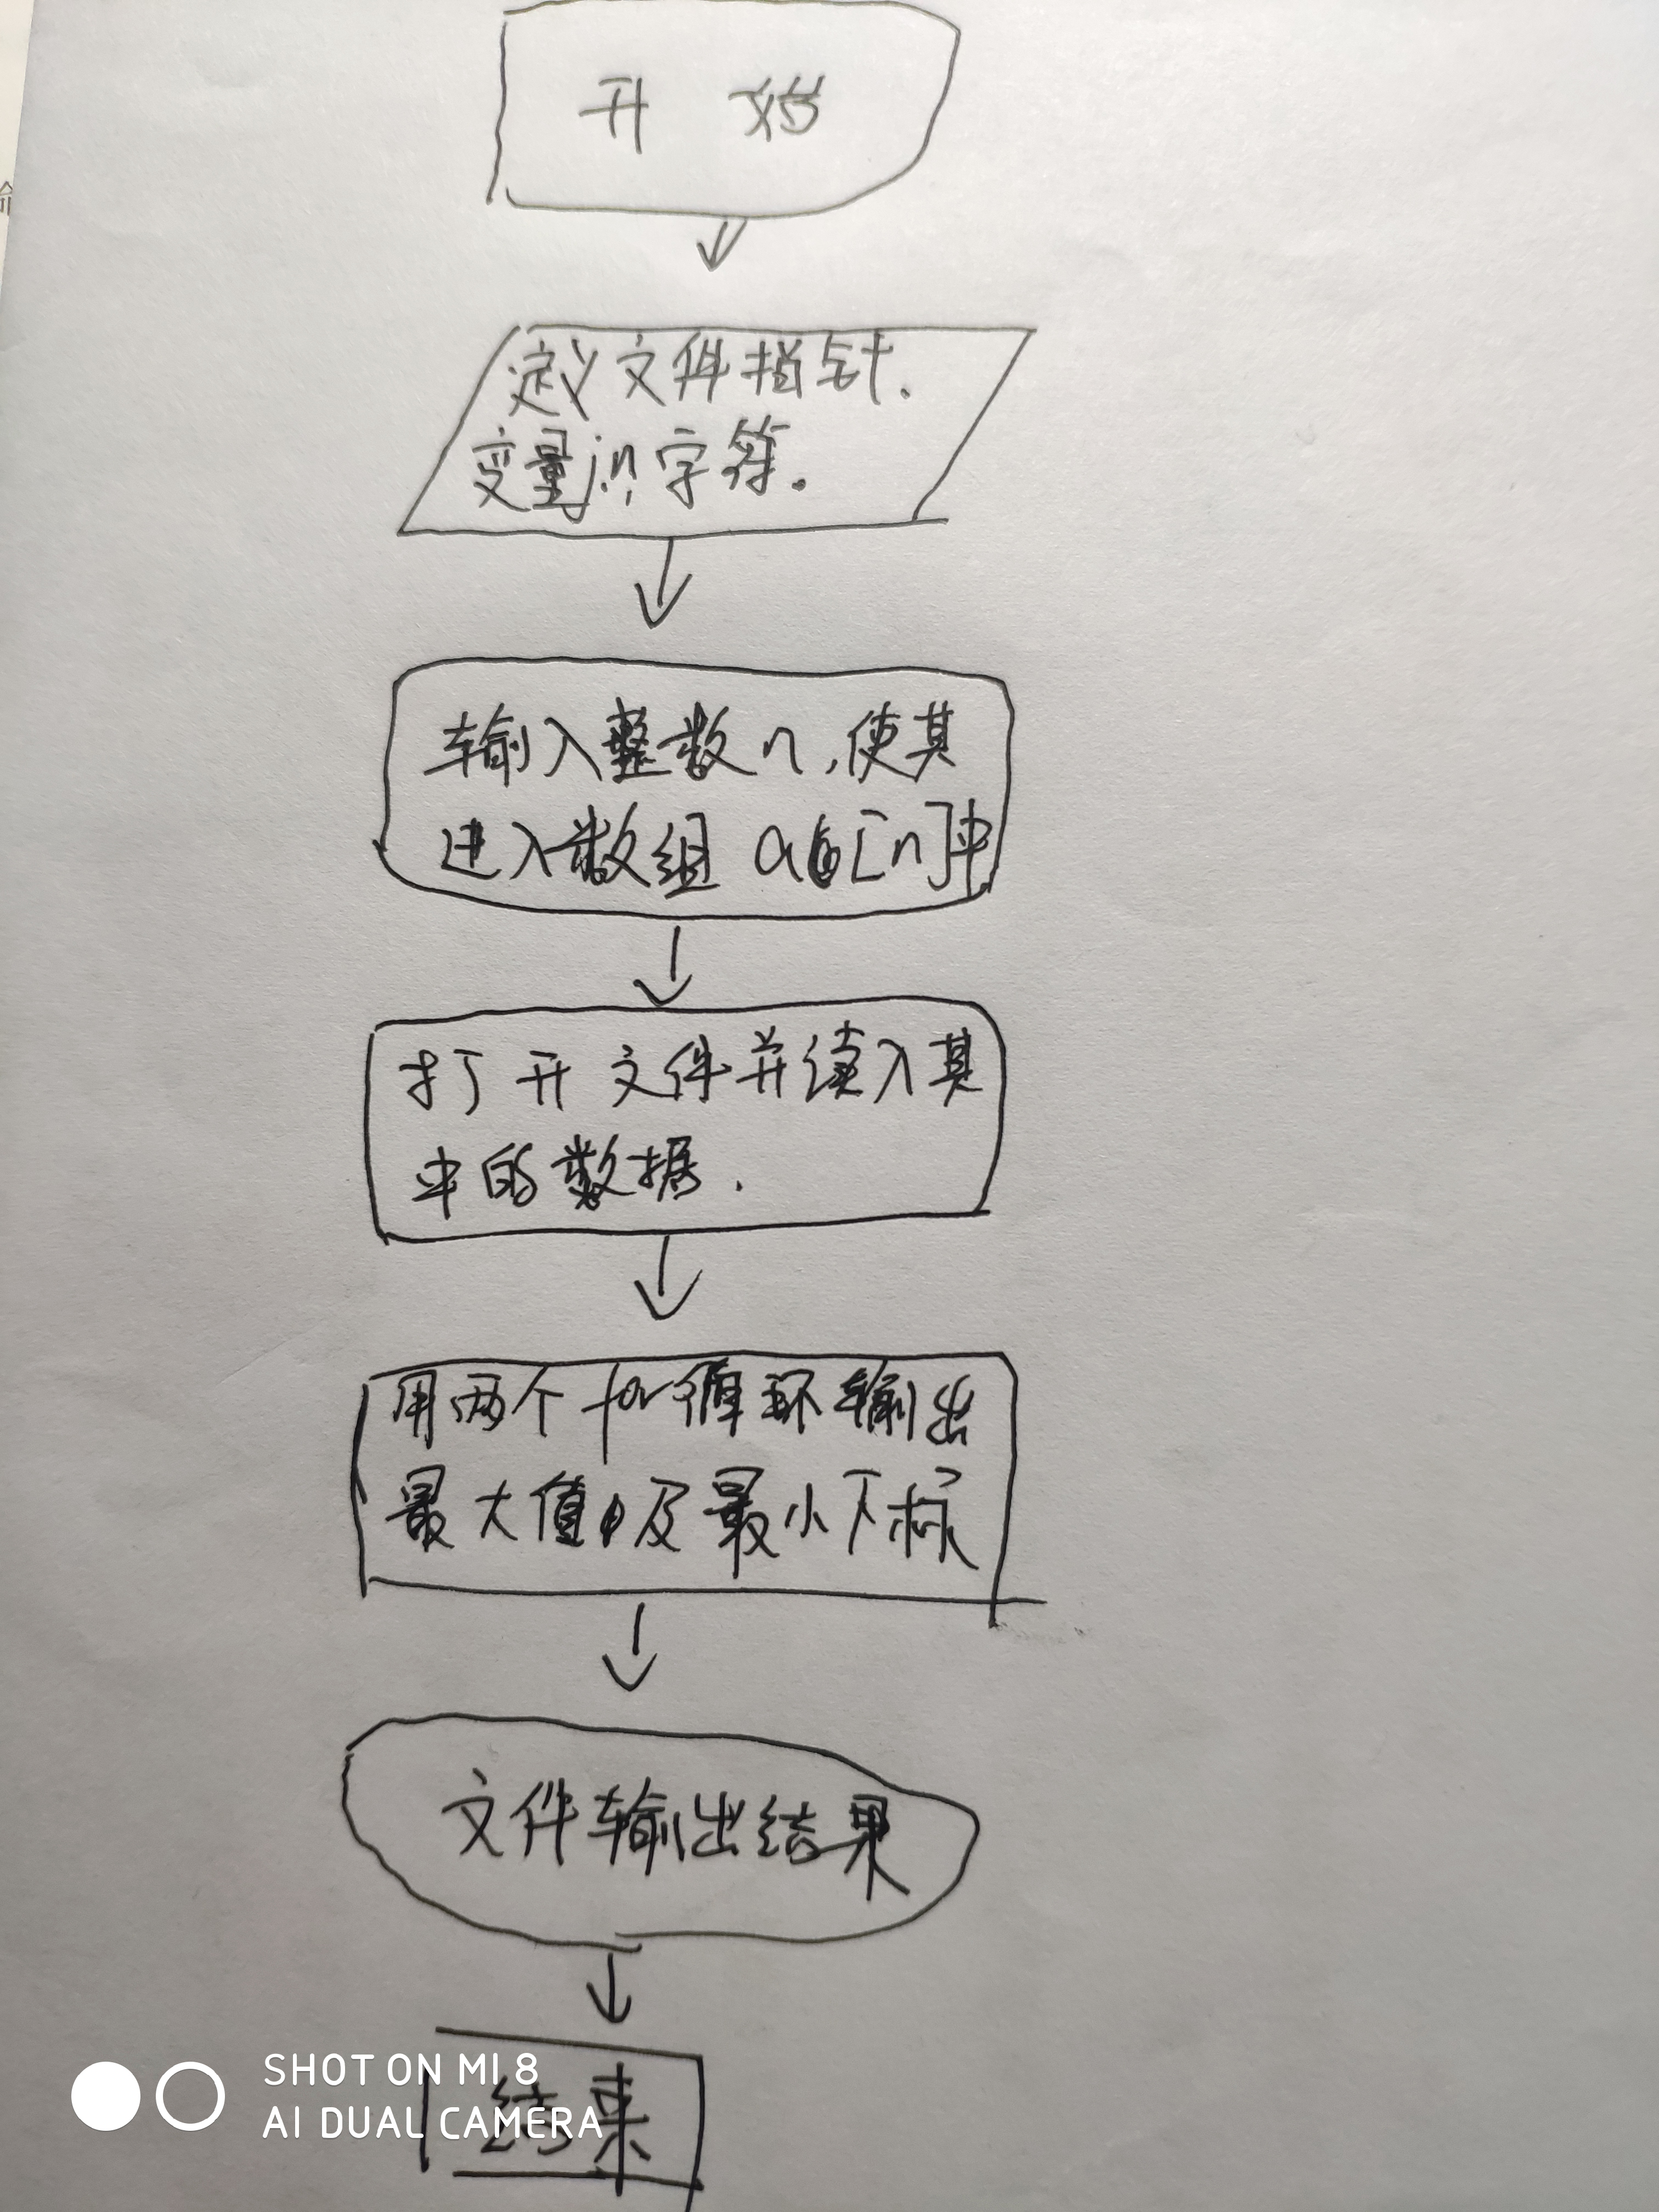 开 始
定义文件指针.
变量i,n,字符.
输入整数n,使其
进入数组 a[n]中
打开文件并读入其
中的数据.
用两个for循环输出
最大值及最小下标
文件输出结果
结束
SHOT ON MI 8
AI DUAL CAMERA